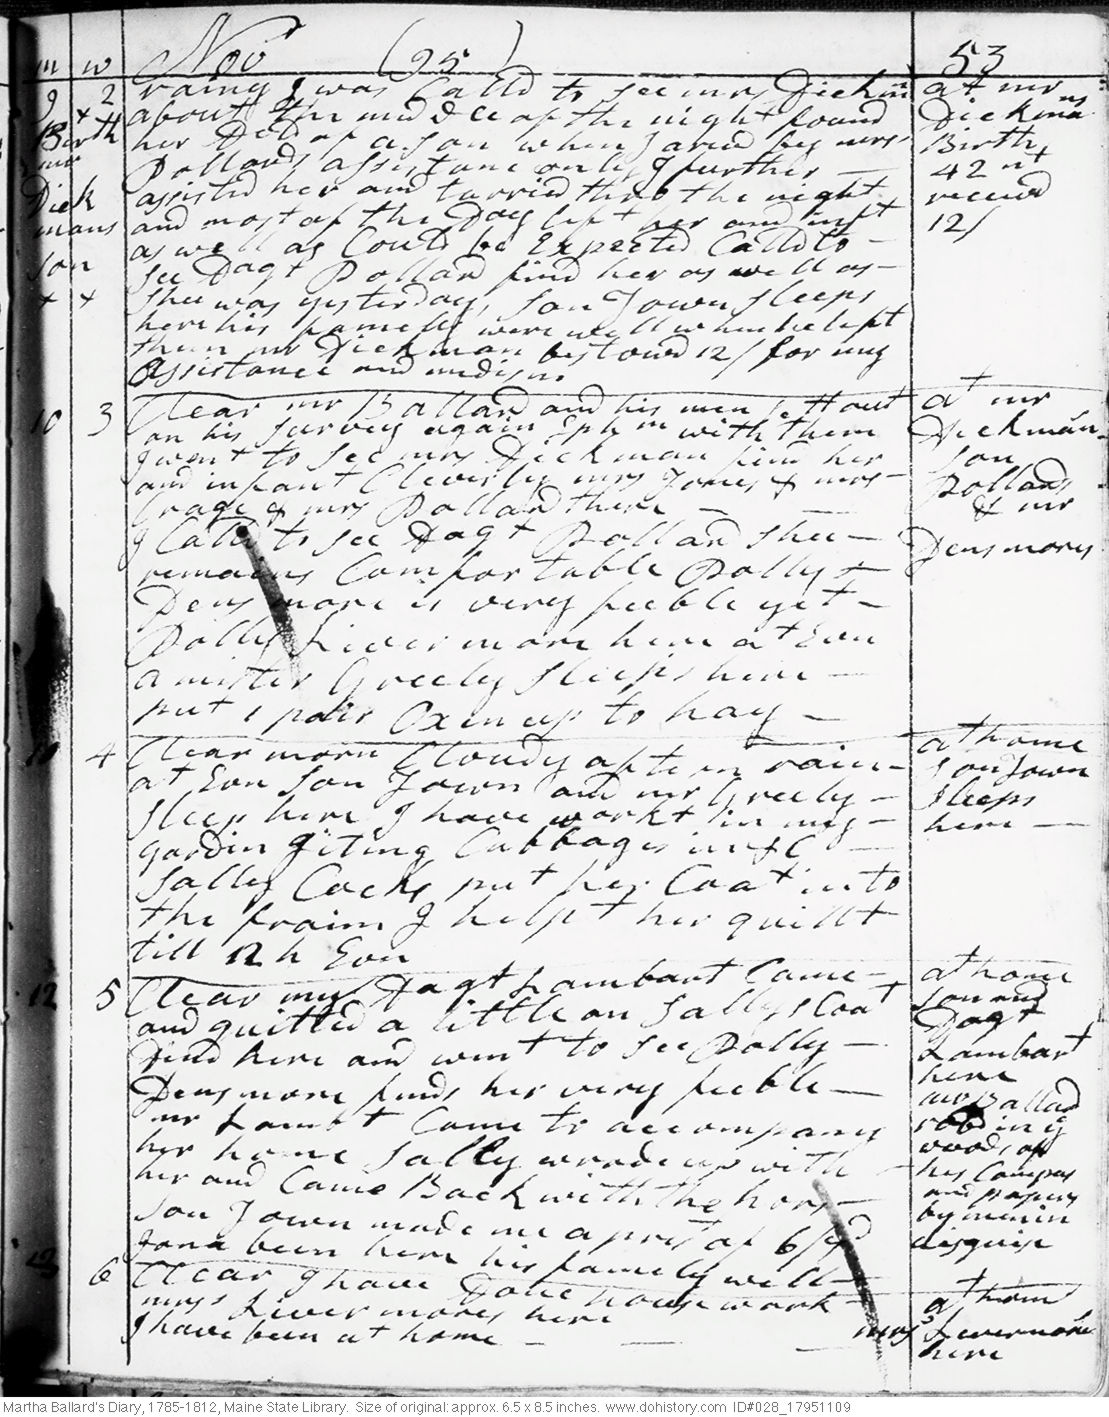 m w Nov (25) 53
9 2 rainy I was Calld to see mrs Dickmn at mr
x about the middle of the night found Dickmans
Birth her Dld of a son when I arivd by mrs Birth
mr Pollards assistanc only I further — 42 nd
Dick assistd her and tarried thro the night receivd
mans and most of the Day left her and inft 12/
son as well as Could be Expected Calld to —
x x See Dagt Pollard find her as well as —
Shee was yesterday, Son Town Sleeps
here his famely were well when he left
them mr Dickman bestowd 12/ for my
Assistance and medisin
10 3 Clear mr Ballard and his men sett out at mr
on his Survey again Ephm with them Dickmans
I went to See mrs Dickman find her Son
and infant Cleverly mrs Jones & mrs — Pollards
Grage & mrs Pollard there — — & mr
I Calld to see Dagt Pollard Shee — Densmores
remains Comfortable Polly +
Densmore is very feeble yet —
Polly Livermore here at Evn
a mister Greely Sleeps here —
put 1 pair Oxen up to hay —
11 4 Clear morn Cloudy aftern rain — at home
at Evn Son Town and mr Greely — Son Town
Sleep here I have workt in my — Sleeps
gardin giting Cabbages in &C — here —
Sally Cocks put her Coat into
the fraim I helpt her quillt
till 12 h Evn
12 5 Clear my Dagt Lambart Came — at home
and quilted a little on Sallys Coat Son and
Dind here and went to See Polly — Dagt
Densmore finds her very feeble — Lambart
mr Lambt Came to accompany here
her home Sally wrode up with mr Ballad
her and Came Back with the hors — robd in ye
Son Town made me a prest of 6/ woods of
Jona been here his famely well — his Compas
and papers
by men in
disguise
13 6 Clear I have Done house work — at home
mrs Livermores here mrs Livermore
I have been at home — — here
Martha Ballard's Diary, 1785-1812, Maine State Library. Size of original: approx. 6.5 x 8.5 inches. www.dohistory.com ID#028_17951109